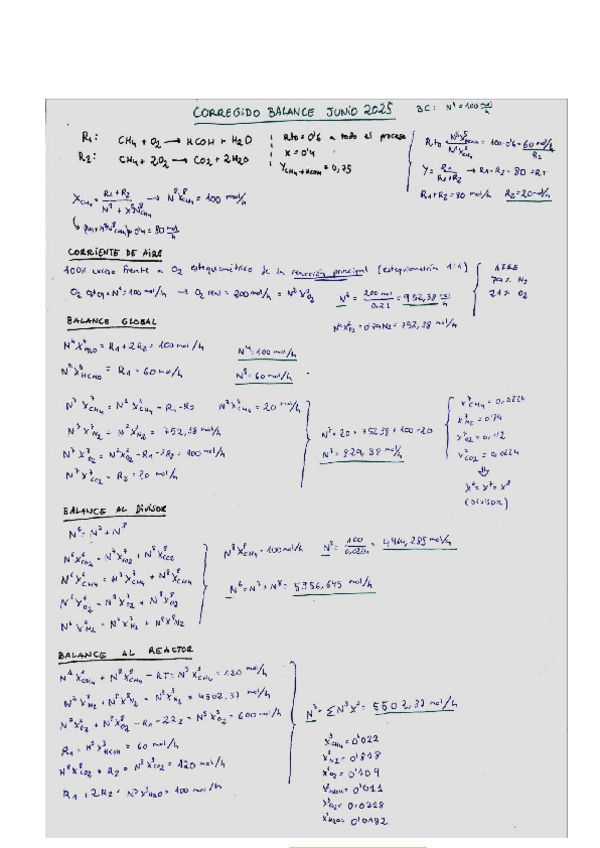 CORREGIDO BALANCE JUNIO 2025 BC: N¹ = 100 mol/h
R1: CH4 + O2 → HCOH + H2O Rto = 0'6 a todo el proceso
R2: CH4 + 2O2 → CO2 + 2H2O X = 0'4
Y CH4→HCOH = 0,75
= 100·0'6 = 60 mol/h
Y = R1/(R1+R2) → R1+R2 = 80 = RT
R1+R2 = 80 mol/h R2 = 20 mol/h
= 100 mol/h
0'4 = 80 mol/h
CORRIENTE DE AIRE
100% exceso frente a O2 estequiométrico de la reacción principal (estequiometría 1:1)
AIRE
79% N2
21% O2
O2 esteq = N¹ = 100 mol/h → O2 real = 200 mol/h = N²X²O2
N² = 200 mol/0.21 = 952,38 mol/h
= 752,38 mol/h
BALANCE GLOBAL
N⁴X⁴H2O = R1 + 2R2 = 100 mol/h N⁴ = 100 mol/h
N⁵X⁵HCHO = R1 = 60 mol/h N⁵ = 60 mol/h
N⁷X⁷CH4 = N¹X¹CH4 - R1 - R2 N⁷X⁷CH4 = 20 mol/h
N⁷X⁷N2 = N²X²N2 = 752,38 mol/h
N⁷X⁷O2 = N²X²O2 - R1 - 2R2 = 100 mol/h
N⁷X⁷CO2 = R2 = 20 mol/h
N⁷ = 20 + 752,38 + 100 + 20
X⁷CH4 = 0,0224
X⁷CO2 = 0,0224
X⁶ = X⁷ = X⁸
(DIVISOR)
BALANCE AL DIVISOR
N⁶ = N⁷ + N⁸
N⁶X⁶CO2 = N⁷X⁷CO2 + N⁸X⁸CO2
N⁶X⁶CH4 = N⁷X⁷CH4 + N⁸X⁸CH4
N⁶X⁶O2 = N⁷X⁷O2 + N⁸X⁸O2
N⁶X⁶N2 = N⁷X⁷N2 + N⁸X⁸N2
N⁸X⁸CH4 = 100 mol/h
N⁶ = N⁷ + N⁸ =
BALANCE AL REACTOR
N¹X¹CH4 + N⁸X⁸CH4 - RT = N³X³CH4 = 120 mol/h
N²X²N2 + N⁸X⁸N2 = N³X³N2 = 4502,37 mol/h
N²X²O2 + N⁸X⁸O2 - R1 - 2R2 = N³X³O2 = 600 mol/h
R1 = N³X³HCOH = 60 mol/h
N⁸X⁸CO2 + R2 = N³X³CO2 = 120 mol/h
R1 + 2R2 = N³X³H2O = 100 mol/h
N³ = ΣN³X³ = 5502,37 mol/h
X³CH4 = 0'022
X³N2 = 0'818
X³O2 = 0'109
X³HCOH = 0'011
X³CO2 = 0,0218
X³H2O = 0'0182